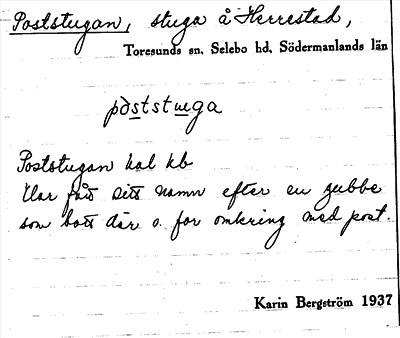 Poststugan, stuga å Herrestad,
Toresunds sn. Selebo hd. Södermanlands län
pòststuga
Poststugan hal kb
Har fått sitt namn efter en gubbe
som bott där o. for omkring med post.
Karin Bergström 1937